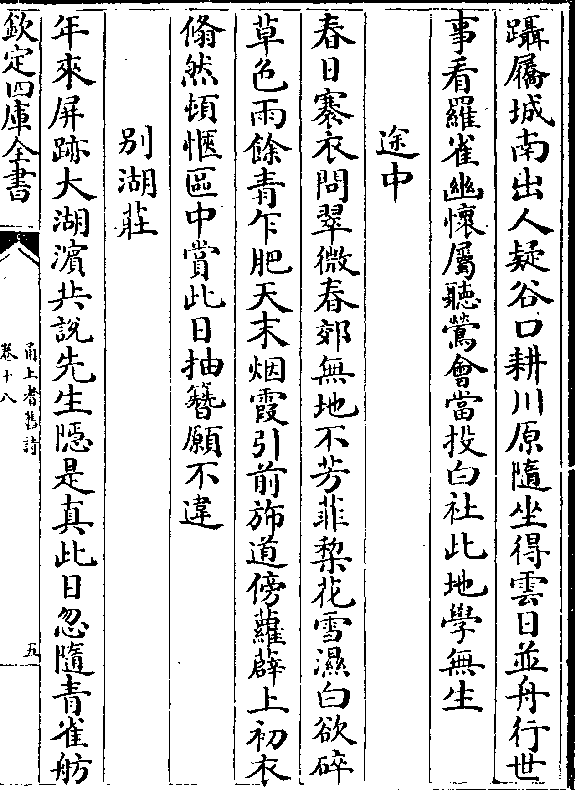 躡屩城南出人疑谷口耕川原隨坐得雲日並舟行世
事看羅雀幽懷屬聽鶯會當投白社此地學無生
途中
春日褰衣問翠微春郊無地不芳菲棃花雪濕白欲碎
草色雨餘青乍肥天末烟霞引前斾道傍蘿薜上初衣
翛然頓愜區中賞此日抽簪願不違
别湖莊
年來屏跡大湖濵共說先生隠是真此日忽隨青雀舫
欽定四庫全書
甬上耆舊詩
卷十八
五